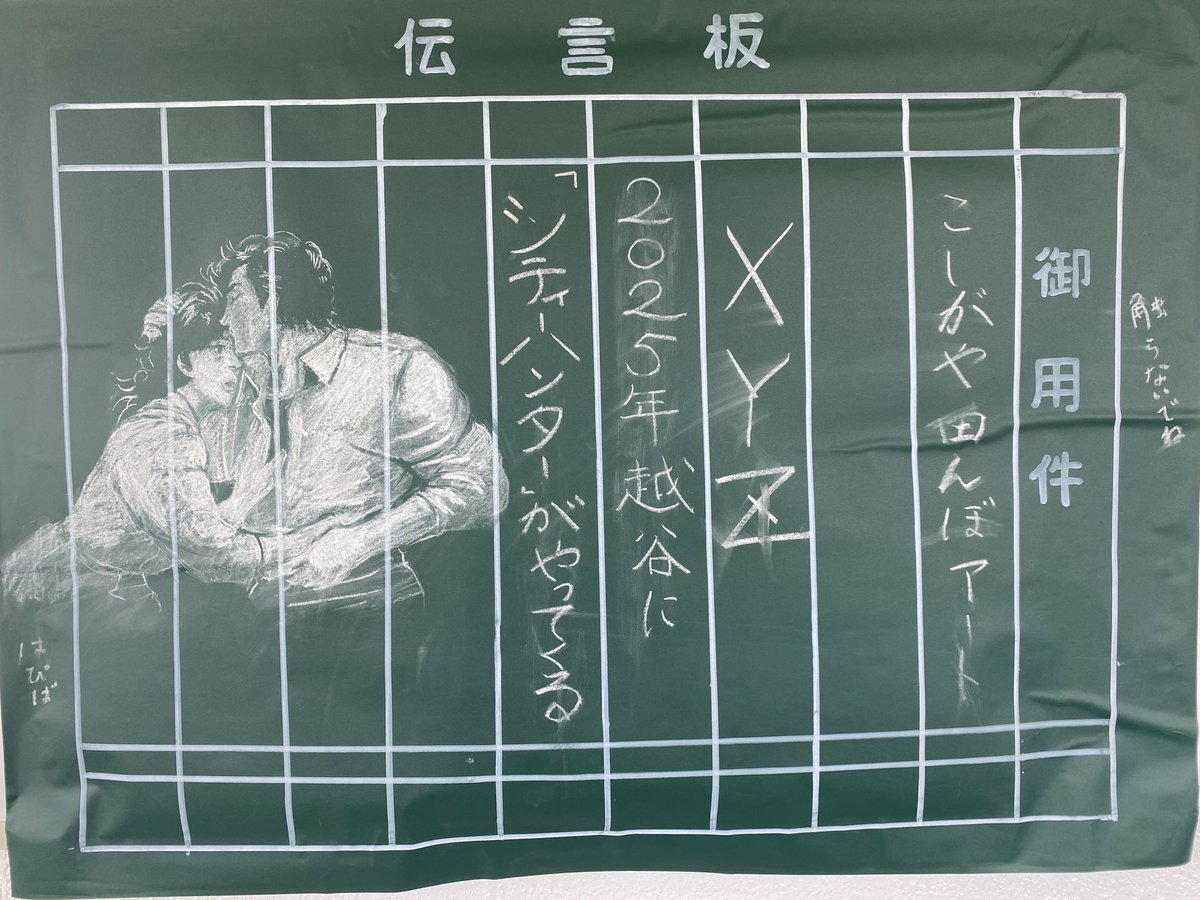 伝言板
御用件
こしがや田んぼアート
XYZ
2025年越谷に
「シティーハンター」がやってくる
触らないでね
はぴば